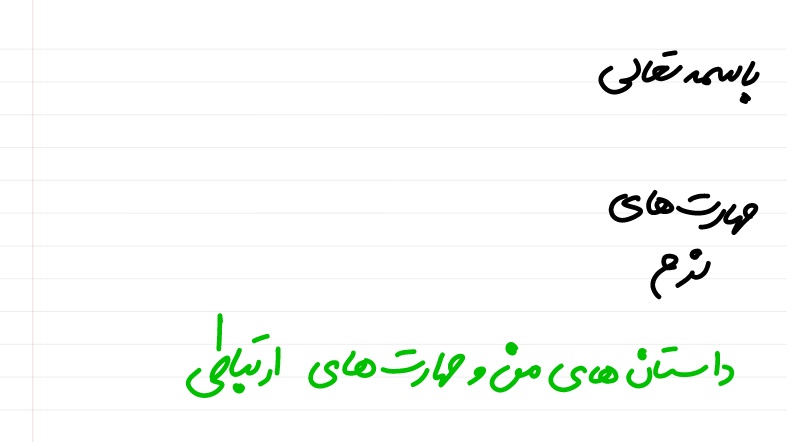 باسمه تعالی
مهارت‌های
نرم
داستان‌های من و مهارت‌های ارتباطی